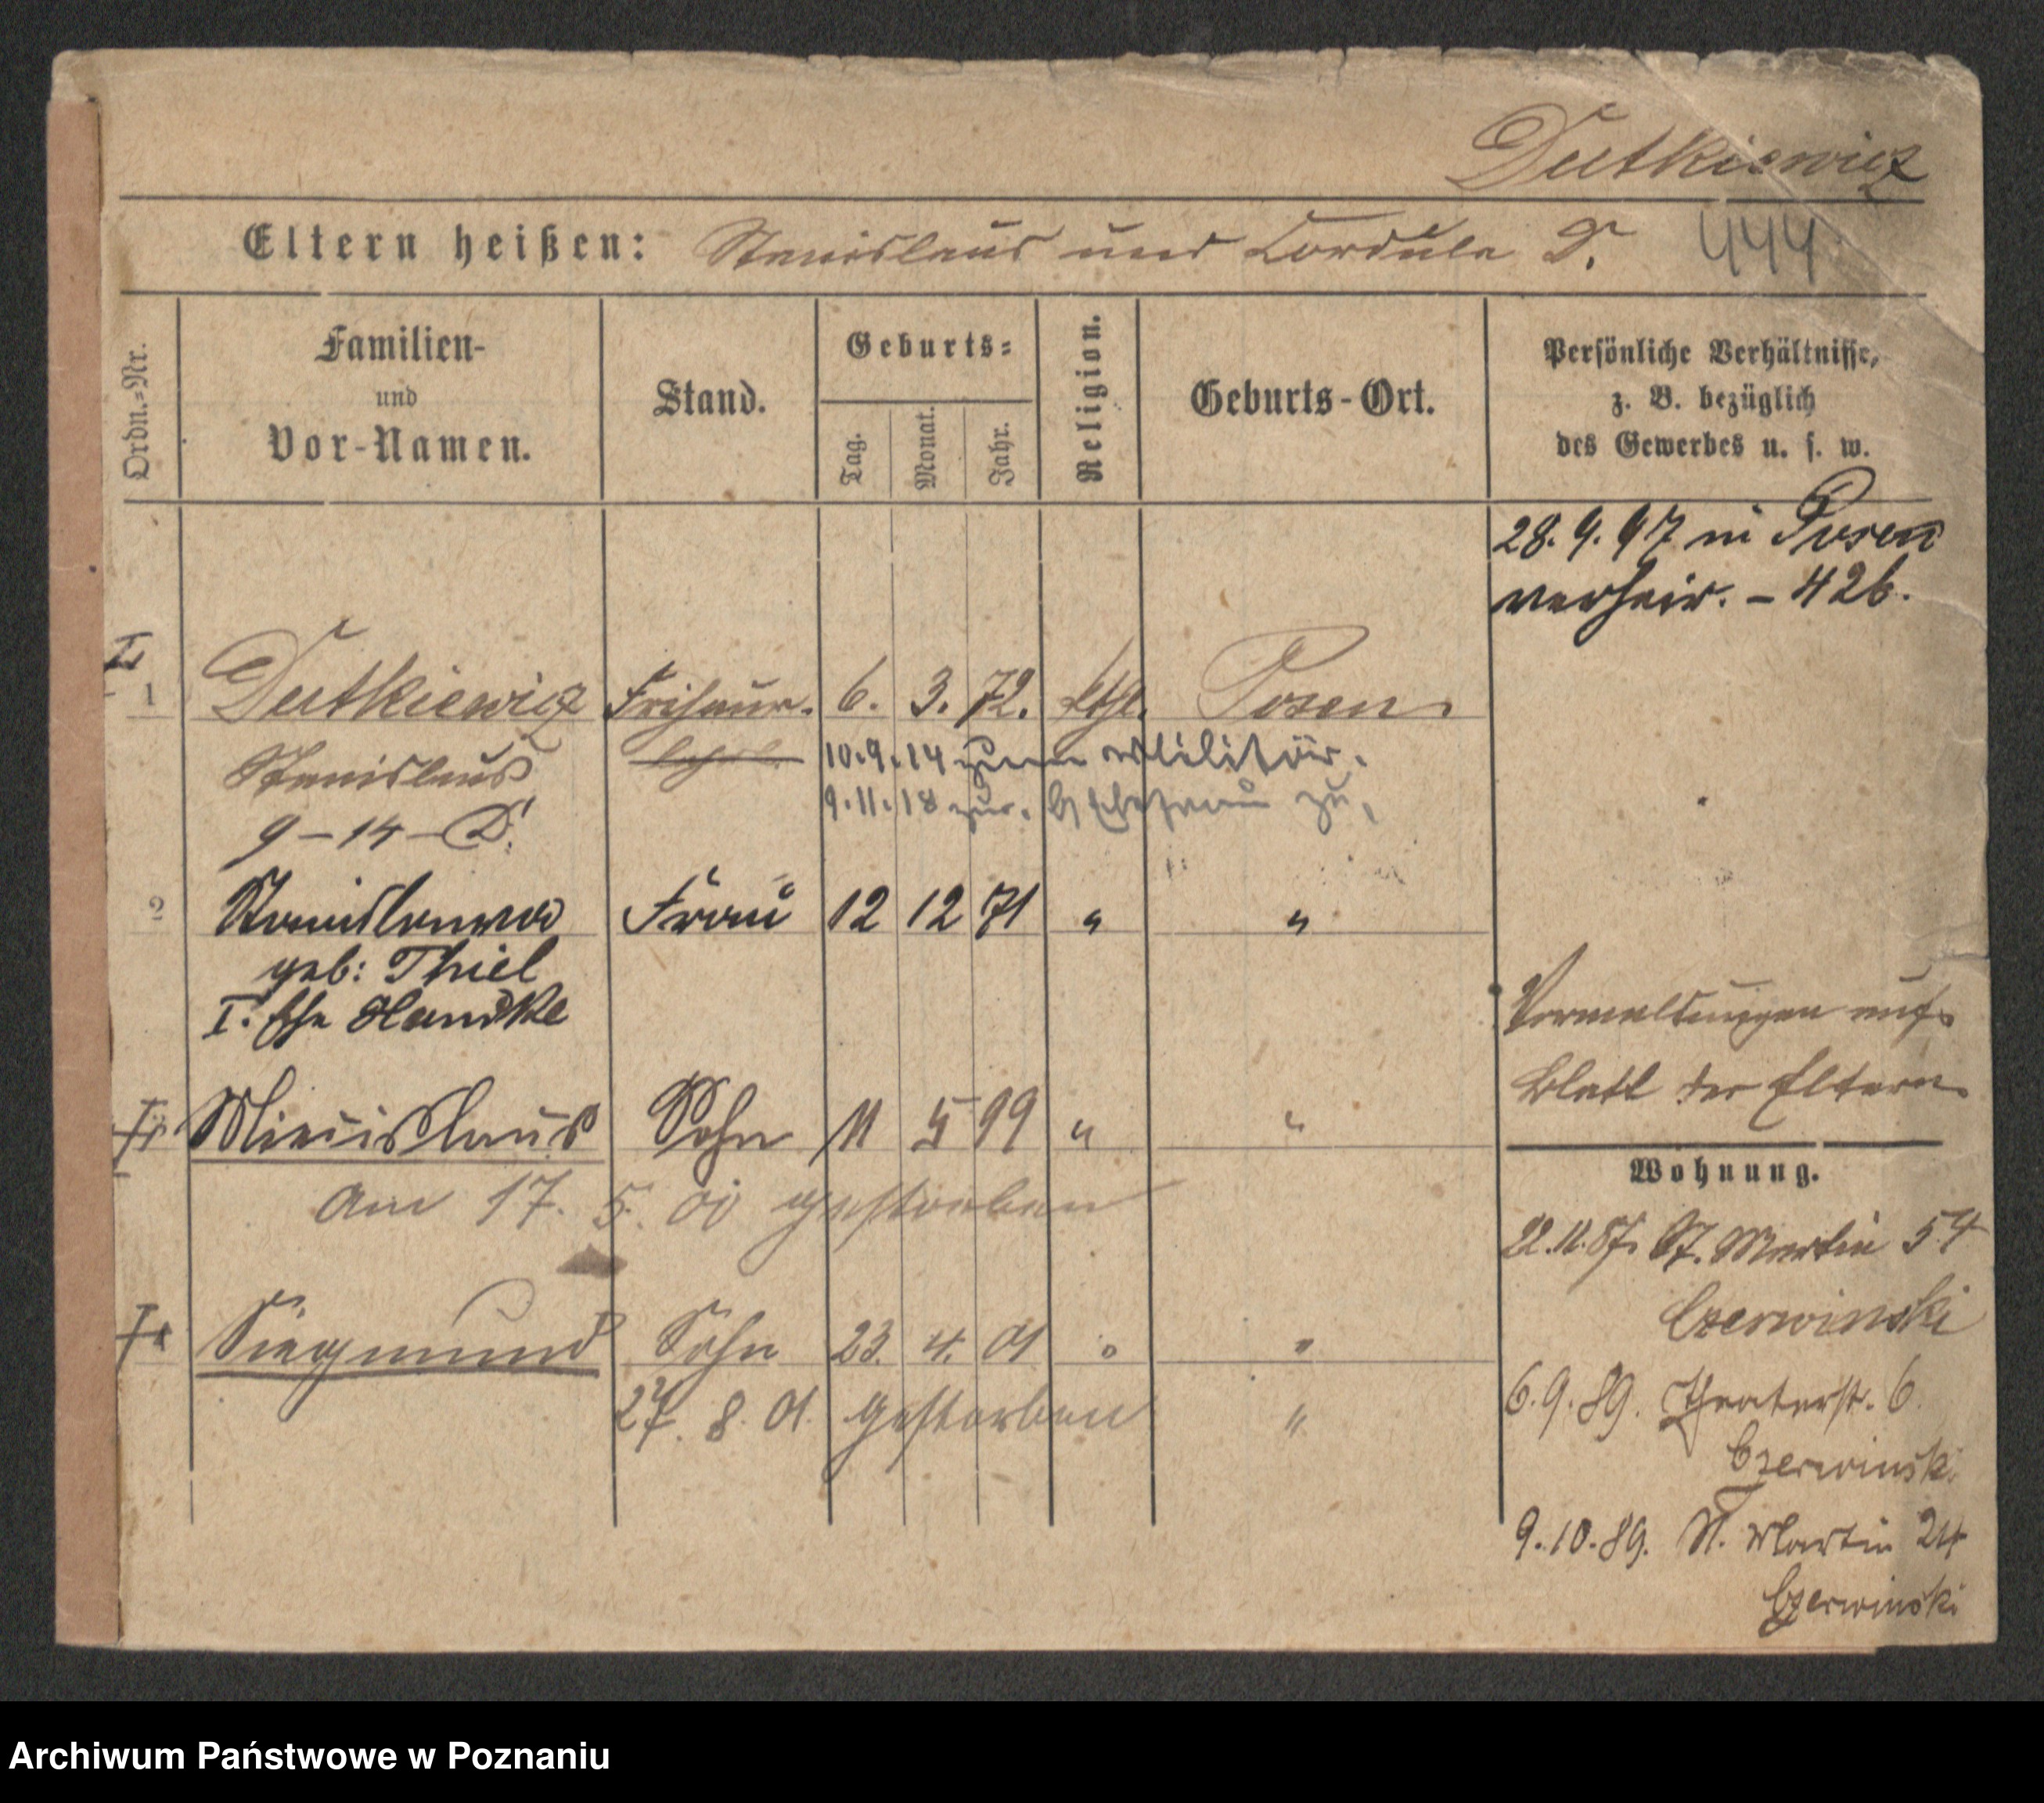 Dutkiewicz
Eltern heißen: Stanislaus und Cordula D.
444
Ordn.=Nr.
Familien-
und
Vor-Namen.
Stand.
Geburts=
Tag.
Monat.
Jahr.
Religion.
Geburts-Ort.
Persönliche Verhältnisse,
z. B. bezüglich
des Gewerbes u. s. w.
28. 9. 97 in Posen
verheir. – 426.
1 Dutkiewicz Friseur. 6. 3. 72. kth. Posen
Stanislaus 10.9.14 zum Militär.
9.11.18 zur. Ehefrau zu.
9 – 14 – D.
2 Stanislawa Frau 12 12 71 " "
geb: Thiel
I. Ehe Handke
Miecislaus Sohn 11 5 99 " "
am 17. 5. gestorben
Siegmund Sohn 23. 4. 01 " "
27. 8. 01. gestorben "
Vormeldungen auf
Blatt der Eltern
Wohnung.
22.11.87. St. Martin 54
Czerwinski
6.9.89. Theaterstr. 6
Czerwinski
9.10.89. St. Martin 24
Czerwinski
Archiwum Państwowe w Poznaniu